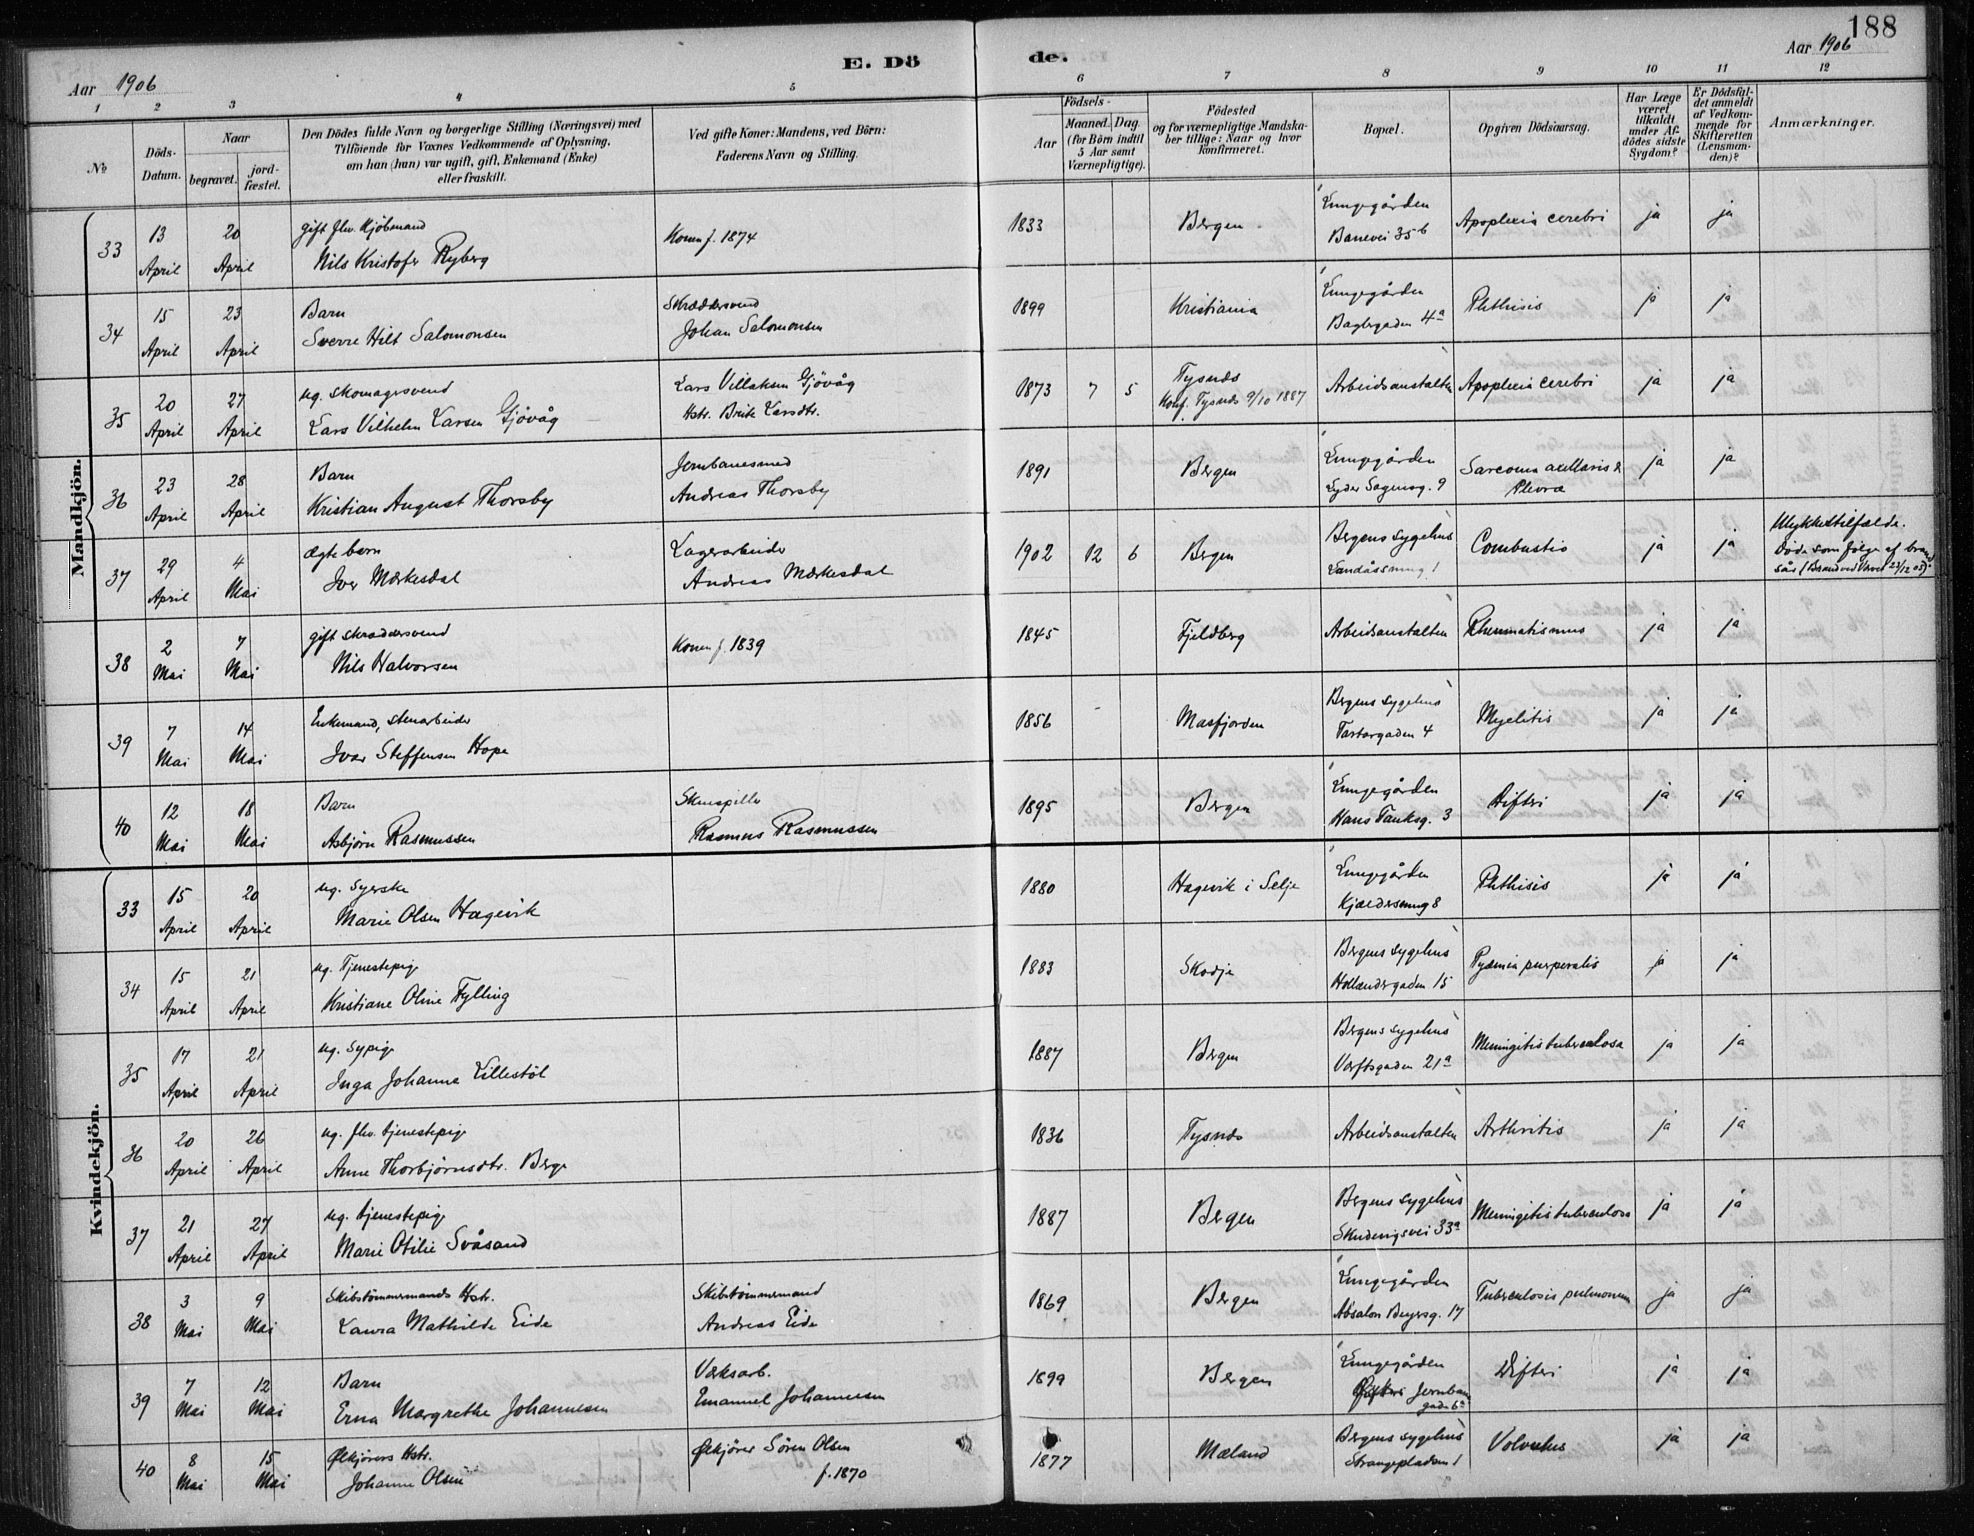 188
E. Döde.
Aar 1906
Aar 1906
1 2 3 4 5 6 7 8 9 10 11 12
No
Döds-Datum.
Naar
begravet.
jord-fæstet.
Den Dödes fulde Navn og borgerlige Stilling (Næringsvei) med
Tilföiende for Voxnes Vedkommende af Oplysning,
om han (hun) var ugift, gift, Enkemand (Enke)
eller fraskilt.
Ved gifte Koner: Mandens, ved Börn:
Faderens Navn og Stilling.
Födsels-
Aar
Maaned. Dag.
(for Börn indtil
5 Aar samt
Værnepligtige).
Födested
og for værnepligtige Mandska-
ber tillige: Naar og hvor
konfirmeret.
Bopæl.
Opgiven Dödsaarsag.
Har Læge
været
tilkaldt
under Af-
dödes sidste
Sygdom?
Er Dödsfal-
det anmeldt
af Vedkom-
mende for
Skifteretten
(Lensman-
den)?
Anmærkninger.
Mandkjön.
33 13 April 20 April gift fhv. Kjöbmand Nils Kristofer Ryberg Konen f. 1874 1833 Bergen Lungegården Banevei 35 b Apoplexia cerebri ja ja
34 15 April 23 April Barn Sverre Hilt Salomonsen Skræddersvend Johan Salomonsen 1899 Kristiania Lungegården Baglergaden 4a Phthisis ja ja
35 20 April 27 April ug. skomagersvend Lars Vilhelm Larsen Gjövåg Lars Villaksen Gjövåg Hstr. Brite Larsdtr. 1873 7 5 Tysnes Konf. Tysnes 9/10 1887 Arbeidsanstalten Apoplexia cerebri ja ja
36 23 April 28 April Barn Kristian August Thorsby Jernbanesmed Andreas Thorsby 1891 Bergen Lungegården Lyder Sagensg. 9 Sarcoma axillaris & Plevra ja ja
37 29 April 4 Mai ægte barn Iver Mærkesdal Lagerarbeider Andreas Mærkesdal 1902 12 6 Bergen Bergens sygehus Landåssmug 1 Combustio ja ja Ulykkestilfælde. Døde som følge af brandsår
38 2 Mai 7 Mai gift skræddersvend Nils Halvorsen Konen f. 1839 1845 Fjeldberg Arbeidsanstalten Rheumatismus ja ja
39 7 Mai 14 Mai Enkemand, stenarbeider Ivar Steffensen Hope 1856 Masfjorden Bergens sygehus Tartargaden 4 Myelitis ja ja
40 12 Mai 18 Mai Barn Asbjørn Rasmussen Skuespiller Rasmus Rasmussen 1895 Bergen Lungegården Hans Tanksg. 3 Difteri ja ja
Kvindekjön.
33 15 April 20 April ug. syerske Marie Olsen Hagevik 1880 Hagevik i Selje Lungegården Kjeldersmug 8 Phthisis ja ja
34 15 April 21 April ug. Tjenestepige Kristiane Oline Fylling 1883 Skodje Bergens sygehus Hollendergaden 15 Pyæmia puerperalis ja ja
35 17 April 21 April ug. sypige Inga Johanna Lillestöl 1887 Bergen Bergens sygehus Verftsgaden 21a Meningitis tuberculosa ja ja
36 20 April 26 April ug. fhv. tjenestepige Anne Thorbjørnsdtr. Berge 1836 Tysnes Arbeidsanstalten Arthritis ja ja
37 21 April 27 April ug. tjenestepige Marie Otilie Svåsand 1887 Bergen Bergens sygehus Skuteviksvei 33a Meningitis tuberculosa ja ja
38 3 Mai 9 Mai Skibstömmermands Hstr. Laura Mathilde Eide Skibstömmermand Andreas Eide 1869 Bergen Lungegården Absalon Beyersg. 17 Tuberculosis pulmonum ja ja
39 7 Mai 12 Mai Barn Erna Margrethe Johannesen Værksarb. Emanuel Johannesen 1899 Bergen Lungegården Jernbanegaden 6a Difteri ja ja
40 8 Mai 15 Mai Ølkjörers Hstr. Johanne Olsen Ølkjörer Sören Olsen f. 1870 1877 Mæland Bergens sygehus Strangepladsen 1 Volvulus ja ja